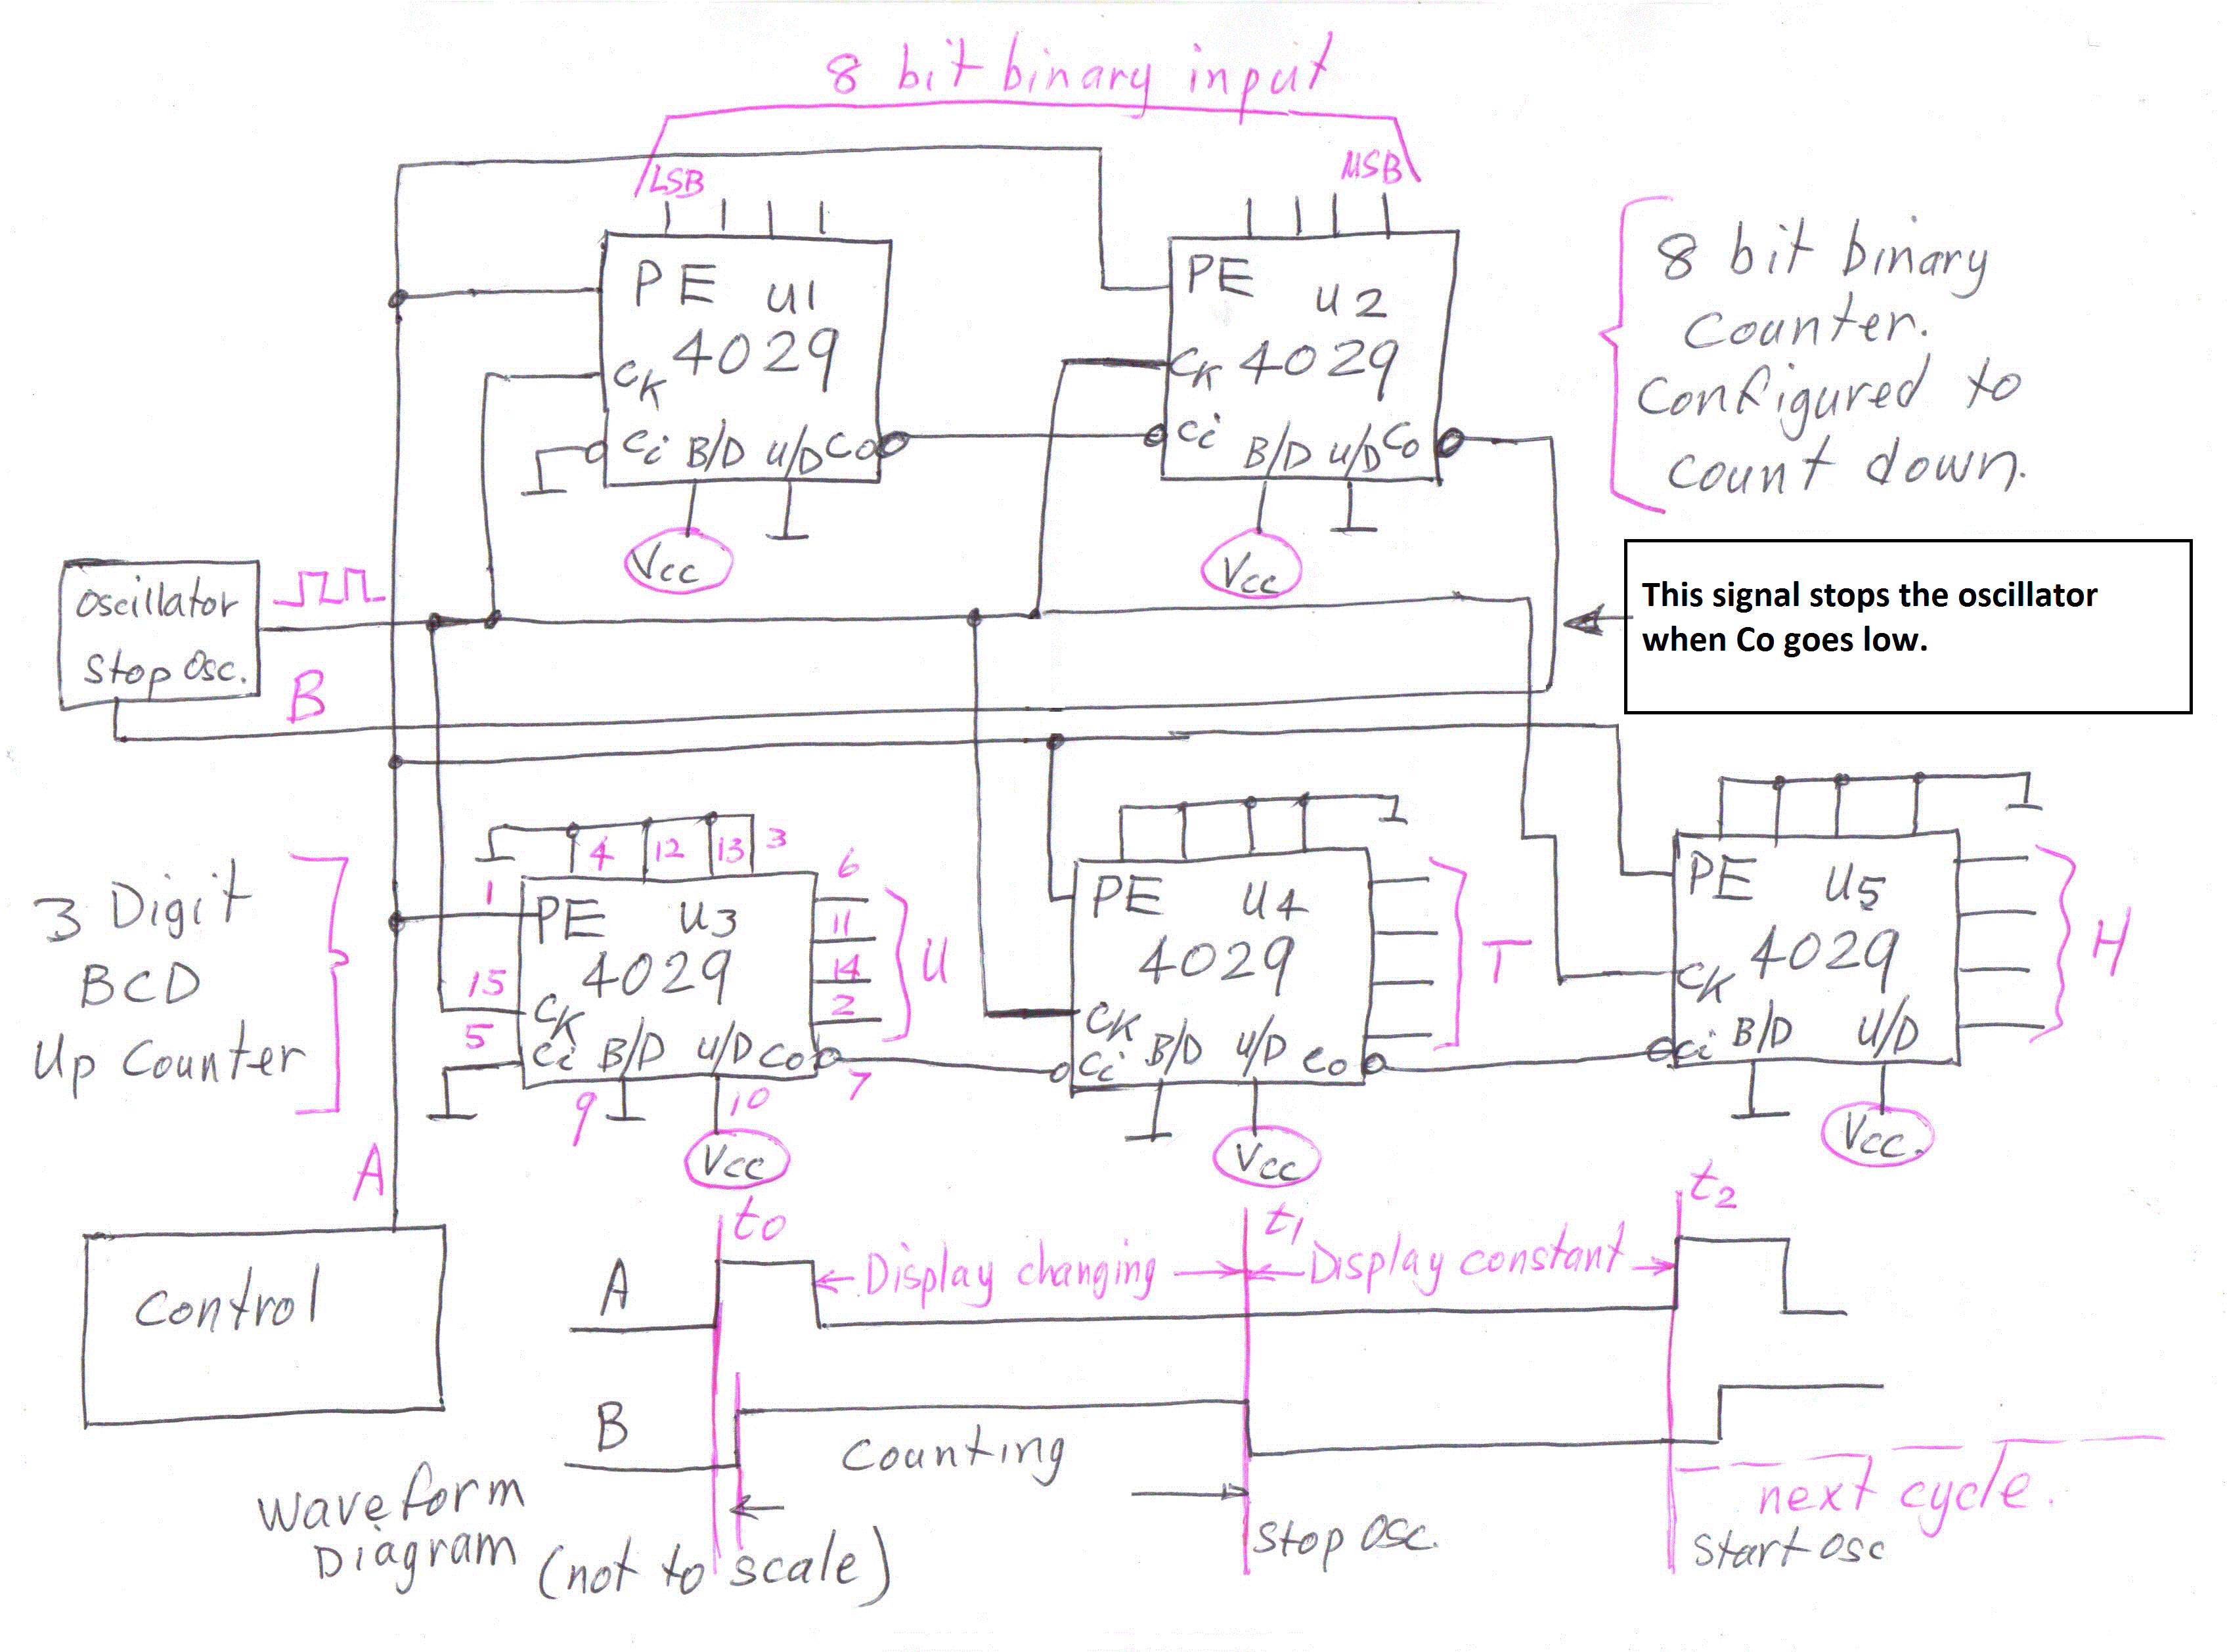 8 bit binary input
LSB
MSB
PE U1
4029
CK
Ci B/D U/D Co
Vcc
PE U2
4029
CK
Ci B/D U/D Co
Vcc
8 bit binary
Counter.
Configured to
count down.
This signal stops the oscillator
when Co goes low.
Oscillator
Stop Osc.
B
3 Digit
BCD
Up Counter
4 12 13 3
1
15
5
PE U3
4029
CK
Ci B/D U/D Co
6
11
14
2
U
7
9
10
Vcc
PE U4
4029
CK
Ci B/D U/D Co
T
Vcc
PE U5
4029
CK
Ci B/D U/D
H
Vcc.
A
Control
t0
t1
t2
A
Display changing
Display constant
B
Counting
Waveform
Diagram
(not to scale)
Stop Osc.
next cycle.
Start Osc